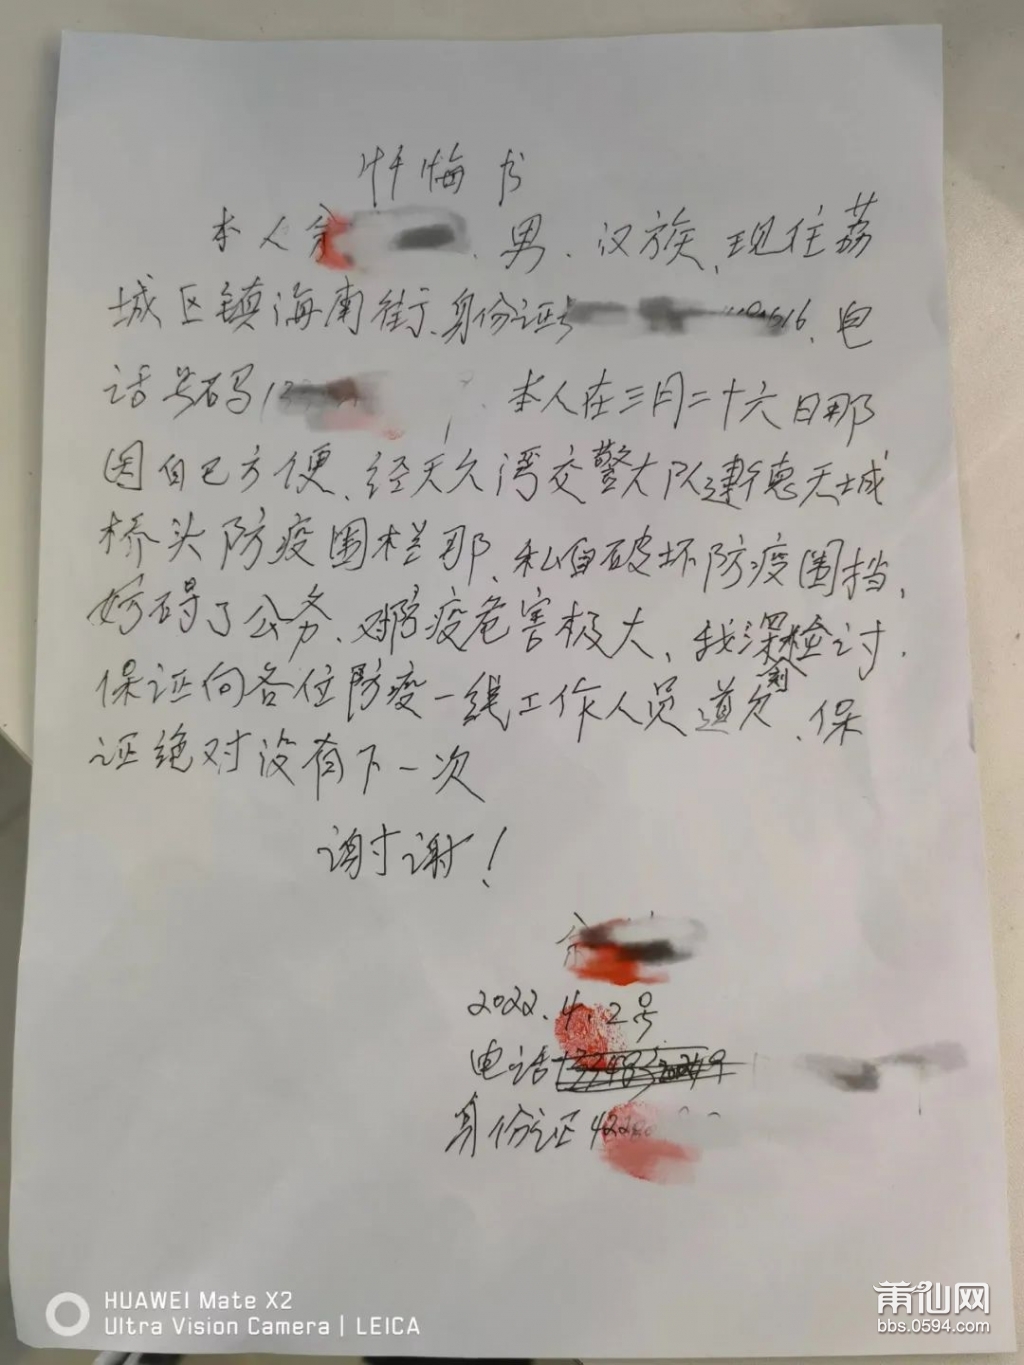 忏悔书
本人余 、男、汉族、现住荔
城区镇海南街、身份证号 1616、电
话号码 本人在三月二十六日那
因自己方便、经天久湾交警大队建德天城
桥头防疫围栏那、私自破坏防疫围挡、
妨碍了公务、对防疫危害极大、我深刻检讨.
保证向各位防疫一线工作人员道欠、保
证绝对没有下一次
谢谢!
余
2022.4.2号
电话
身份证 422
HUAWEI Mate X2
Ultra Vision Camera | LEICA
莆仙网
bbs.0594.com